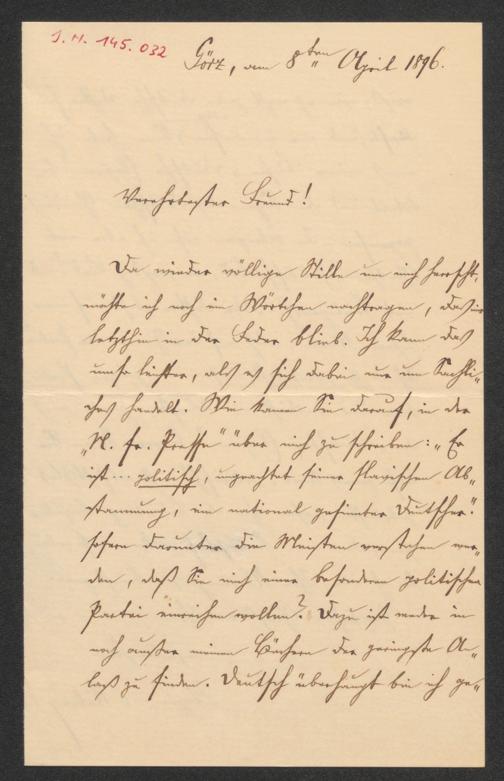 J. N. 145.032
Görz, am 8ten April 1896.
Verehrtester Freund!
Da wieder völlige Stille um mich herrscht,
möchte ich noch ein Wörtchen nachtragen, das mir
letzthin in der Feder blieb. Ich kann das
umso leichter, als es sich dabei nur um Sachli-
ches handelt. Wie kamen Sie darauf, in der
„N. fr. Presse" über mich zu schreiben: „Er
ist ... politisch, ungeachtet seiner slavischen Ab-
stammung, ein national gesinnter Deutscher."
sofern darunter die Meisten verstehen wer-
den, daß Sie mich einer besonderen politischen
Partei einreihen wollen? Dazu ist weder in
noch außer meinen Büchern der geringste An-
laß zu finden. Deutsch überhaupt bin ich ge-